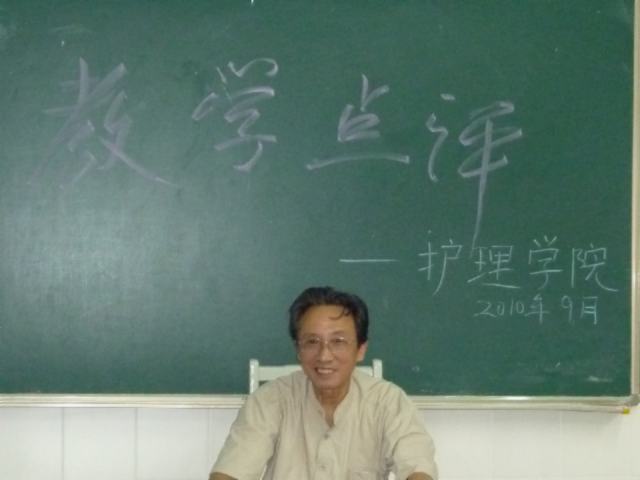 教学点评
—护理学院
2010年9月